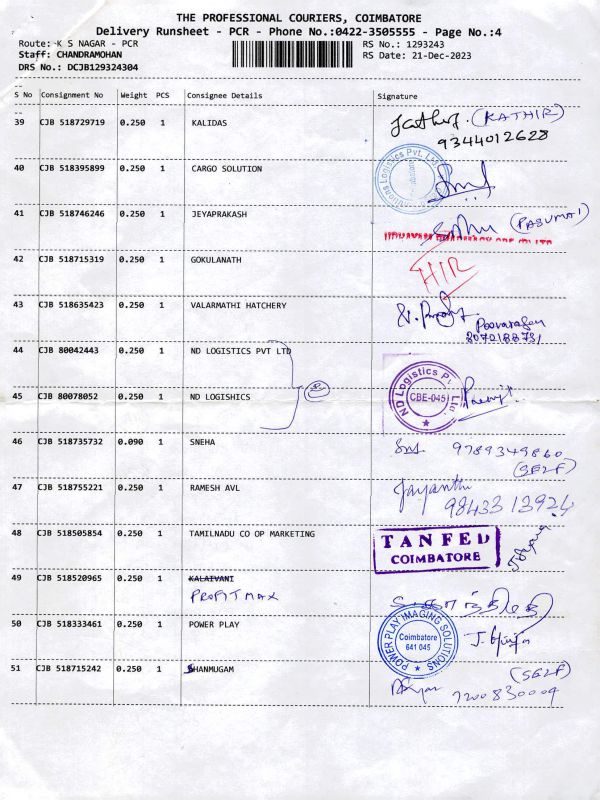 THE PROFESSIONAL COURIERS, COIMBATORE
Delivery Runsheet - PCR - Phone No.:0422-3505555 - Page No.:4
Route: K S NAGAR - PCR
RS No.: 1293243
Staff: CHANDRAMOHAN
RS Date: 21-Dec-2023
DRS No.: DCJB129324304
S No Consignment No Weight PCS Consignee Details Signature
39 CJB 518729719 0.250 1 KALIDAS (KATHIR)
9344012628
40 CJB 518395899 0.250 1 CARGO SOLUTION
Logistics Pvt. Ltd
41 CJB 518746246 0.250 1 JEYAPRAKASH (PASUMAI)
42 CJB 518715319 0.250 1 GOKULANATH
43 CJB 518635423 0.250 1 VALARMATHI HATCHERY
44 CJB 80042443 0.250 1 ND LOGISTICS PVT LTD
45 CJB 80078052 0.250 1 ND LOGISHICS
ND Logistics Pvt Ltd
CBE-045
46 CJB 518735732 0.090 1 SNEHA 9789349860
(SELF)
47 CJB 518755221 0.250 1 RAMESH AVL Jayanthi
98433 13924
48 CJB 518505854 0.250 1 TAMILNADU CO OP MARKETING
TANFED
COIMBATORE
49 CJB 518520965 0.250 1 KALAIVANI
PROFITMAX
50 CJB 518333461 0.250 1 POWER PLAY
POWER PLAY IMAGING SOLUTIONS
Coimbatore
641 045
51 CJB 518715242 0.250 1 SHANMUGAM (SELF)
7200830009